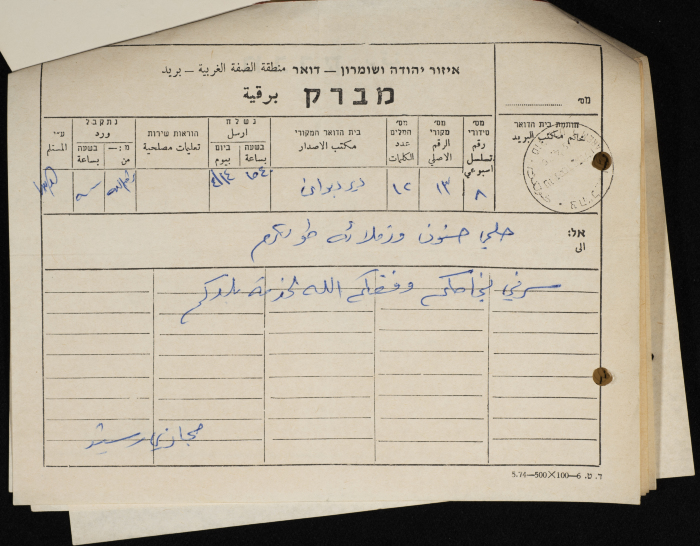 איזור יהודה ושומרון – דואר منطقة الضفة الغربية – بريد
מברק برقية
מס׳
חותמת בית הדואר
خاتم مكتب البريد
מס׳ סידורי رقم تسلسل اسبوعي
מס׳ מקורי الرقم الاصلي
מס׳ המלים عدد الكلمات
בית הדואר המקורי مكتب الاصدار
נשלח ارسل
בשעה بساعة
ביום بيوم
הוראות שירות تعليمات مصلحية
נתקבל ورد
מ:— من
בשעה بساعة
ע״י المستلم
٨ ١٣ ١٢ ديردبوان
אל: الى
حلمي حنون وزملائه طولكرم
سرني نجاحكم وفقكم الله لخدمة بلدكم
حجازي
ד. ט. 6–100×500–5.74